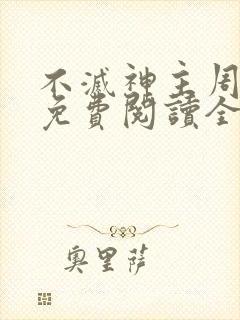 不滅神主周
免費閱讀全
奧里薩